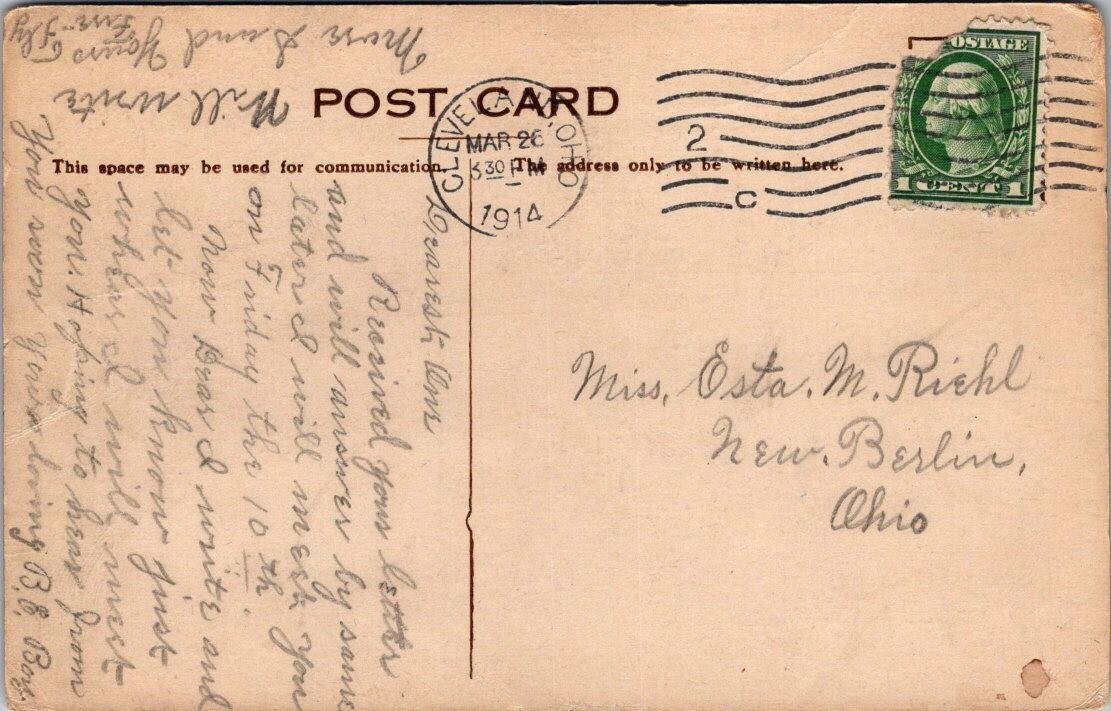 POST CARD
This space may be used for communication.
The address only to be written here.
CLEVELAND, OHIO
MAR 26
330 PM
1914
2
C
POSTAGE
1 CENT 1
Dearest One
Received your letter
and will answer by same
later I will meet you
on Friday the 10th.
Now Dear I write and
let you know just
where I will meet
you. Hoping to hear from
You soon Your loving B.E. Boy.
Will write
more Sund
Yours
Miss, Esta. M. Riehl
New. Berlin,
Ohio